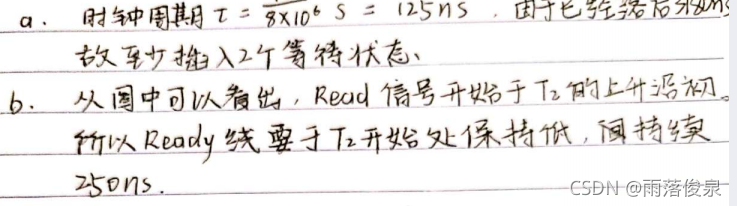 a. 时钟周期 τ = 1/8×10⁶ s = 125ns . 由于已经落后180ns
故至少插入2个等待状态、
b. 从图中可以看出, Read 信号开始于 T₂ 的上升沿初。
所以 Ready 线要于 T₂ 开始处保持低,且持续
250ns.
CSDN @雨落俊泉